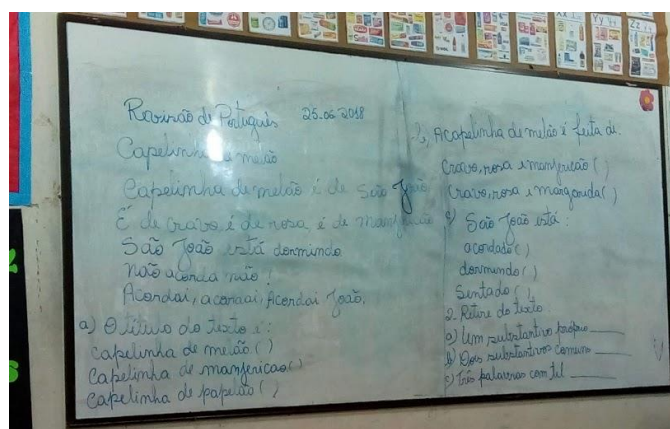 Revisão de Português 25.06.2018
Capelinha de melão
Capelinha de melão é de São João
É de cravo, é de rosa, é de manjericão
São João está dormindo
não acorda não!
Acordai, acordai, Acordai João.
a) O título do texto é:
capelinha de melão ( )
Capelinha de manjericao ( )
Capelinha de papelão ( )
b) A capelinha de melão é feita de:
Cravo, rosa e manjericão ( )
Cravo, rosa e margarida ( )
c) São João está:
acordado ( )
dormindo ( )
Sentado ( )
2- Retire do texto
a) Um substantivo próprio
b) Dois substantivos comuns
c) três palavras com til